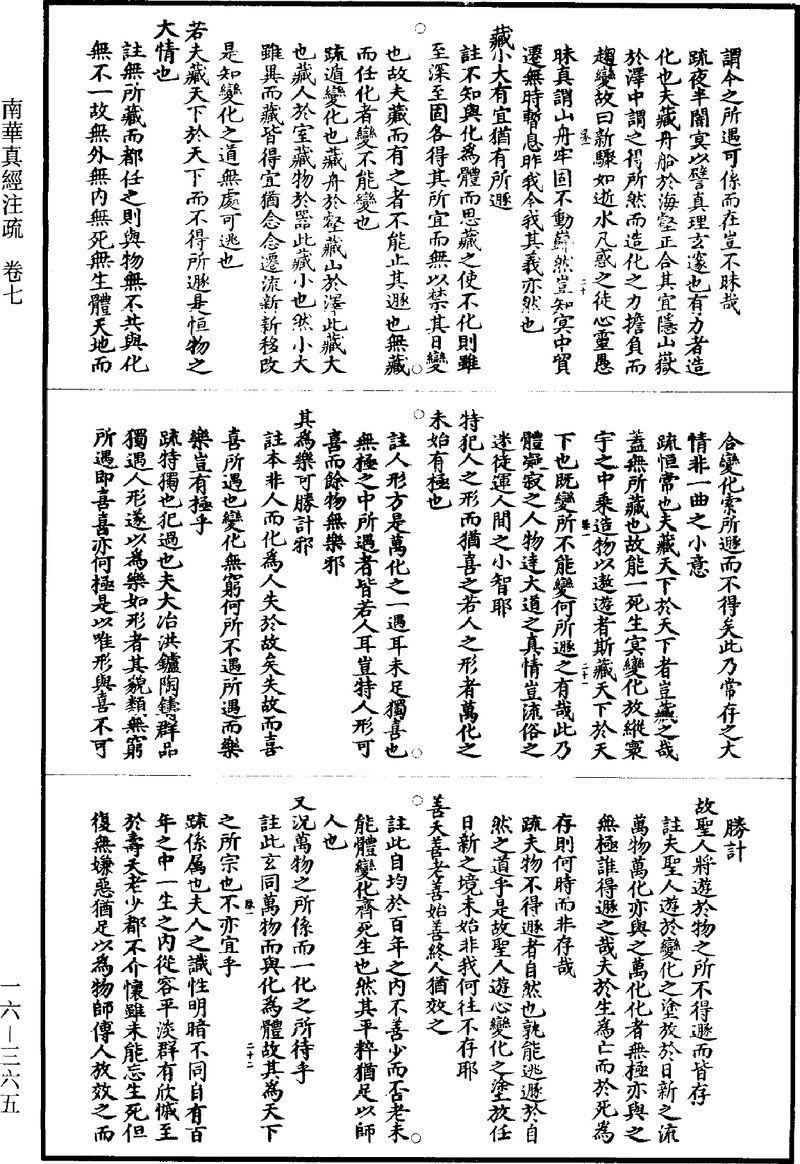 南華真經注疏　卷七
謂今之所遇可係而在豈不昧哉
疏夜半闇冥以譬真理玄邃也有力者造
化也夫藏舟船於海壑正合其宜隱山嶽
於澤中謂之得所然而造化之力擔負而
趨變故曰新驟如逝水凡惑之徒心靈愚
昧真謂山舟牢固不動巋然豈知冥中貿
遷無時暫息昨我今我其義亦然也
藏小大有宜猶有所遯
註不知與化為體而思藏之使不化則雖
至深至固各得其所宜而無以禁其日變
也故夫藏而有之者不能止其遯也無藏
而任化者變不能變也
疏遁變化也藏舟於壑藏山於澤此藏大
也藏人於室藏物於器此藏小也然小大
雖異而藏皆得宜猶念念遷流新新移改
是知變化之道無處可逃也
若夫藏天下於天下而不得所遯是恒物之
大情也
註無所藏而都任之則與物無不共與化
無不一故無外無內無死無生體天地而
合變化索所遯而不得矣此乃常存之大
情非一曲之小意
疏恒常也夫藏天下於天下者豈藏之哉
蓋無所藏也故能一死生冥變化放縱寰
宇之中乘造物以遨遊者斯藏天下於天
下也既變所不能變何所遯之有哉此乃
體凝寂之人物達大道之真情豈流俗之
迷徒運人間之小智耶
特犯人之形而猶喜之若人之形者萬化之
未始有極也
註人形方是萬化之一遇耳未足獨喜也
無極之中所遇者皆若人耳豈特人形可
喜而餘物無樂邪
其為樂可勝計邪
註本非人而化為人失於故矣失故而喜
喜所遇也變化無窮何所不遇所遇而樂
樂豈有極乎
疏特獨也犯遇也夫大冶洪鑪陶鑄群品
獨遇人形遂以為樂如形者其貌類無窮
所遇即喜喜亦何極是以唯形與喜不可
勝計
故聖人將遊於物之所不得遯而皆存
註夫聖人遊於變化之塗放於日新之流
萬物萬化亦與之萬化化者無極亦與之
無極誰得遯之哉夫於生為亡而於死為
存則何時而非存哉
疏夫物不得遯者自然也孰能逃遯於自
然之道乎是故聖人遊心變化之塗放任
日新之境未始非我何往不存耶
善夭善老善始善終人猶效之
註此自均於百年之內不善少而否老未
能體變化齊死生也然其平粹猶足以師
人也
又況萬物之所係而一化之所待乎
註此玄同萬物而與化為體故其為天下
之所宗也不亦宜乎
疏係屬也夫人之識性明暗不同自有百
年之中一生之內從容平淡群有欣慽至
於壽夭老少都不介懷雖未能忘生死但
復無嫌惡猶足以為物師傅人放效之而
一六—三六五